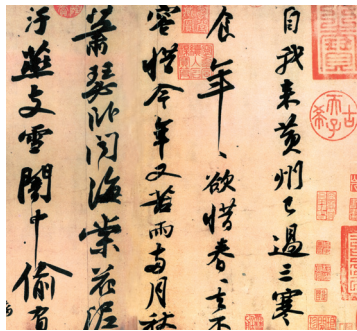 自我來黃州已過三寒
食年〻欲惜春〻去不
容惜今年又苦雨兩月秋
蕭瑟卧聞海棠花泥
汙燕支雪闇中偷負
古希天子